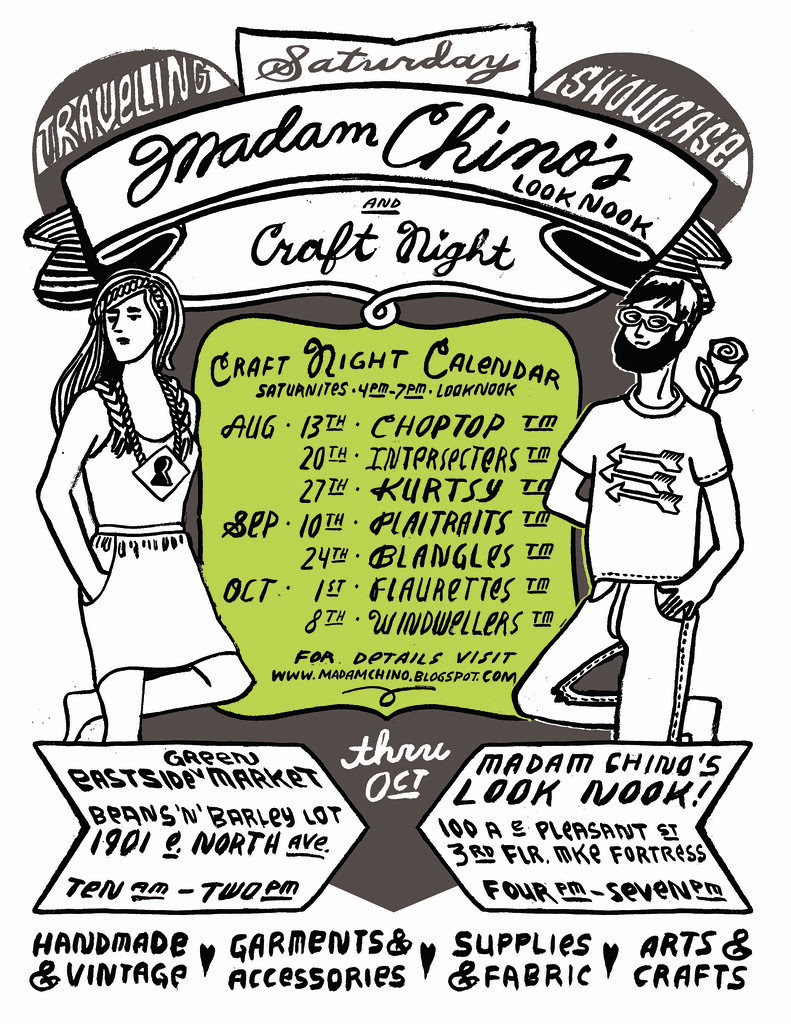 Saturday
TRAVELING
SHOWCASE
Madam Chino's
LOOK NOOK
AND
Craft Night
CRAFT NIGHT CALENDAR
SATURNITES · 4PM-7PM · LOOKNOOK
AUG · 13TH · CHOPTOP TM
20TH · INTERSECTERS TM
27TH · KURTSY TM
SEP · 10TH · PLAITRAITS TM
24TH · BLANGLES TM
OCT · 1ST · FLAURETTES TM
8TH · WINDWELLERS TM
FOR DETAILS VISIT
WWW.MADAMCHINO.BLOGSPOT.COM
thru
OCT
GREEN
EASTSIDE MARKET
BEANS 'N' BARLEY LOT
1901 E. NORTH AVE.
TEN AM - TWO PM
MADAM CHINO'S
LOOK NOOK!
100 A E PLEASANT ST
3RD FLR. MKE FORTRESS
FOUR PM - SEVEN PM
HANDMADE & VINTAGE ♥ GARMENTS & ACCESSORIES ♥ SUPPLIES & FABRIC ♥ ARTS & CRAFTS